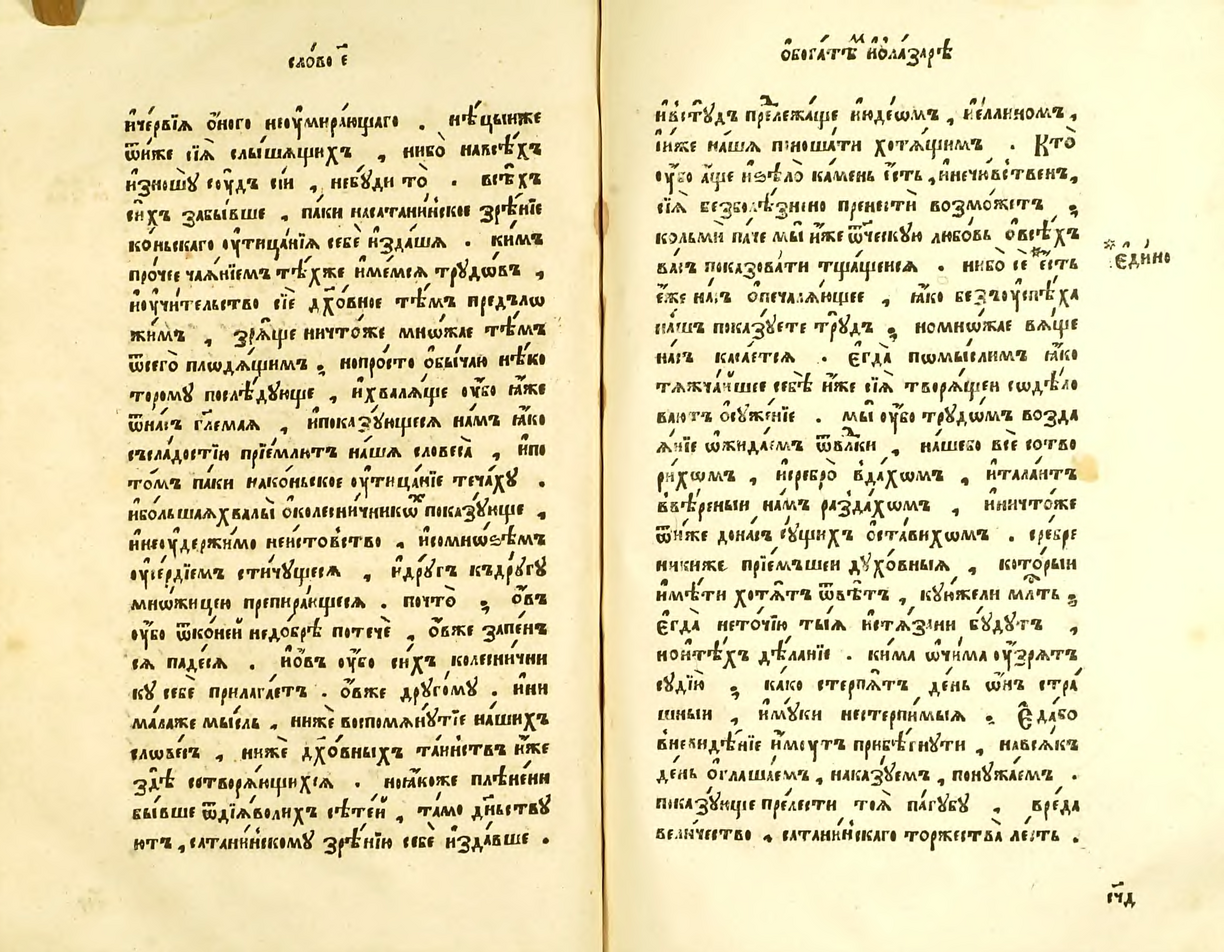 сло́во є҃
и҆че́рвїѧ ѻ҆́ного неꙋ҆мира́ющаго . нѣ́цыиже
ѿни́же сїѧ̀ слы́шѧщихъ , нибо̀ навсѣ́хъ
и҆зношꙋ̀ сꙋ́дъ си́и , небꙋ́ди то̀ . всѣ́хъ
си́хъ забы́вше , па́ки насатани́нское зрѣ́нїе
ко́ньскаго ᲂу҆тица́нїѧ себѐ и҆зда́шѧ . ки́мъ
про́чее ча́ѧнїемъ тѣ́хже и҆́мемсѧ трꙋдѡ́въ ,
и҆ᲂу҆чи́тельство сїѐ дꙋхо́вное тѣ́мъ предъло
жи́мъ , зрѧ́ще ничто́же мно́жае тѣ́мъ
ѿсего̀ плодѧ́щимъ , нопро́сто ѻ҆бы́чаю нѣ́ко
торомꙋ послѣ́дꙋюще , и҆хва́лѧще ᲂу҆́бо ꙗ҆̀же
ѿна́съ гл҃емаѧ , и҆пока́зꙋющесѧ на́мъ ꙗ҆́ко
съсла́достїю прїе́млютъ на́шѧ словеса̀ , и҆по
то́мъ па́ки нако́ньское ᲂу҆тица́нїе теча́хꙋ .
и҆бо́льшаѧхвалы̀ ѻ҆колесни́чникѡхъ пока́зꙋюще ,
и҆неᲂу҆держи́мо неи́стовство , и҆сомно́ѕѣмъ
ᲂу҆се́рдїемъ стичꙋ́щесѧ , и҆дрꙋ́гъ къдрꙋ́гꙋ
мно́жицею препира́ющесѧ . почто̀ ; ѻ҆́въ
ᲂу҆́бо ѿко́ней недо́брѣ потечѐ , ѻ҆́вже запе́н
сѧ паде́сѧ . и҆ѻ҆́въ ᲂу҆́бо си́хъ колесни́чни
кꙋ себѐ прилага́етъ . ѻ҆́вже дрꙋго́мꙋ . и҆ни
ма́лаже мы́сль , нижѐ воспомѧнꙋ́тїе на́шихъ
слове́съ , нижѐ дꙋхо́вныхъ та́инствъ и҆́же
здѣ̀ сотворѧ́ющихсѧ . ноꙗ҆́коже плѣ́нени
бы́вше ѿдїѧ́волихъ сѣ́тей , та́мо дн҃ьствꙋ
ютъ , сатани́нскомꙋ зрѣ́нїю себѐ и҆зда́вше .
ѻ҆бога́тѣмъ и҆ѻ҆ла́зарѣ
и҆встꙋ́дъ прележа́ще и҆юде́ѡмъ , и҆е҆́ллиномъ ,
и҆и҆̀же на́шѧ поноша́ти хотѧ́щимъ . Кто̀
ᲂу҆́бо а҆́ще и҆ѕѣло̀ ка́мень є҆́сть , и҆нечю́вственъ ,
сїѧ̀ безболѣ́знено пренестѝ возмо́жетъ ;
кольмѝ па́че мы̀ и҆̀же ѻ҆те́ческꙋю любо́вь ѻ҆всѣ́хъ
ва́съ показова́ти тща́щеисѧ . нибо̀ се є҆́сть
є҆́же на́съ ѻ҆печа́лѧющее , ꙗ҆́ко безъᲂу҆спѣ́ха
на́шъ показꙋ́ете трꙋ́дъ , номно́жае вѧ́ще
на́съ каса́етсѧ . є҆гда̀ помы́слимъ ꙗ҆́ко
тѧжча́йшее себѣ̀ и҆̀же сїѧ̀ творѧ́щеи содѣ́ло
ваютъ ѻ҆сꙋже́нїе . мы̀ ᲂу҆́бо трꙋдѡ́мъ возда
ѧ́нїе ѡ҆жида́емъ ѿвл҃дки , на́шебо всѐ сотво
ри́хомъ , и҆сребро̀ вда́хомъ , и҆тала́нтъ
ввѣ́реныи на́мъ разда́хомъ , и҆ничто́же
ѿни́же дона́съ сꙋ́щихъ ѻ҆ста́вихомъ . сребре
никиже прїе́мшеи дꙋхо́вныѧ , кото́рыи
и҆мѣ́ти хотѧ́тъ ѿвѣ́тъ , кꙋ́южели мл҃сть ;
є҆гда̀ нето́чїю ты́ѧ и҆стѧ́зани бꙋ́дꙋтъ ,
нои҆тѣ́хъ дѣ́ланїе . ки́ма ѻ҆чи́ма ᲂу҆́зрѧтъ
сꙋдїю̀ ; ка́ко стерпѧ́тъ де́нь ѻ҆́нъ стра́
шныи , и҆мꙋ́ки нестерпи́мыѧ . Є҆да́бо
вневи́дѣнїе и҆́мꙋтъ прибѣ́гнꙋти , навсѧ́къ
де́нь ѻ҆глаша́емъ , наказꙋ́емъ , понꙋжа́емъ .
пока́зꙋюще пре́лести тоѧ̀ па́гꙋбꙋ , вреда̀
вели́чество , сатани́нскаго торжества̀ ле́сть .
*є҆ди́но
сч҃д